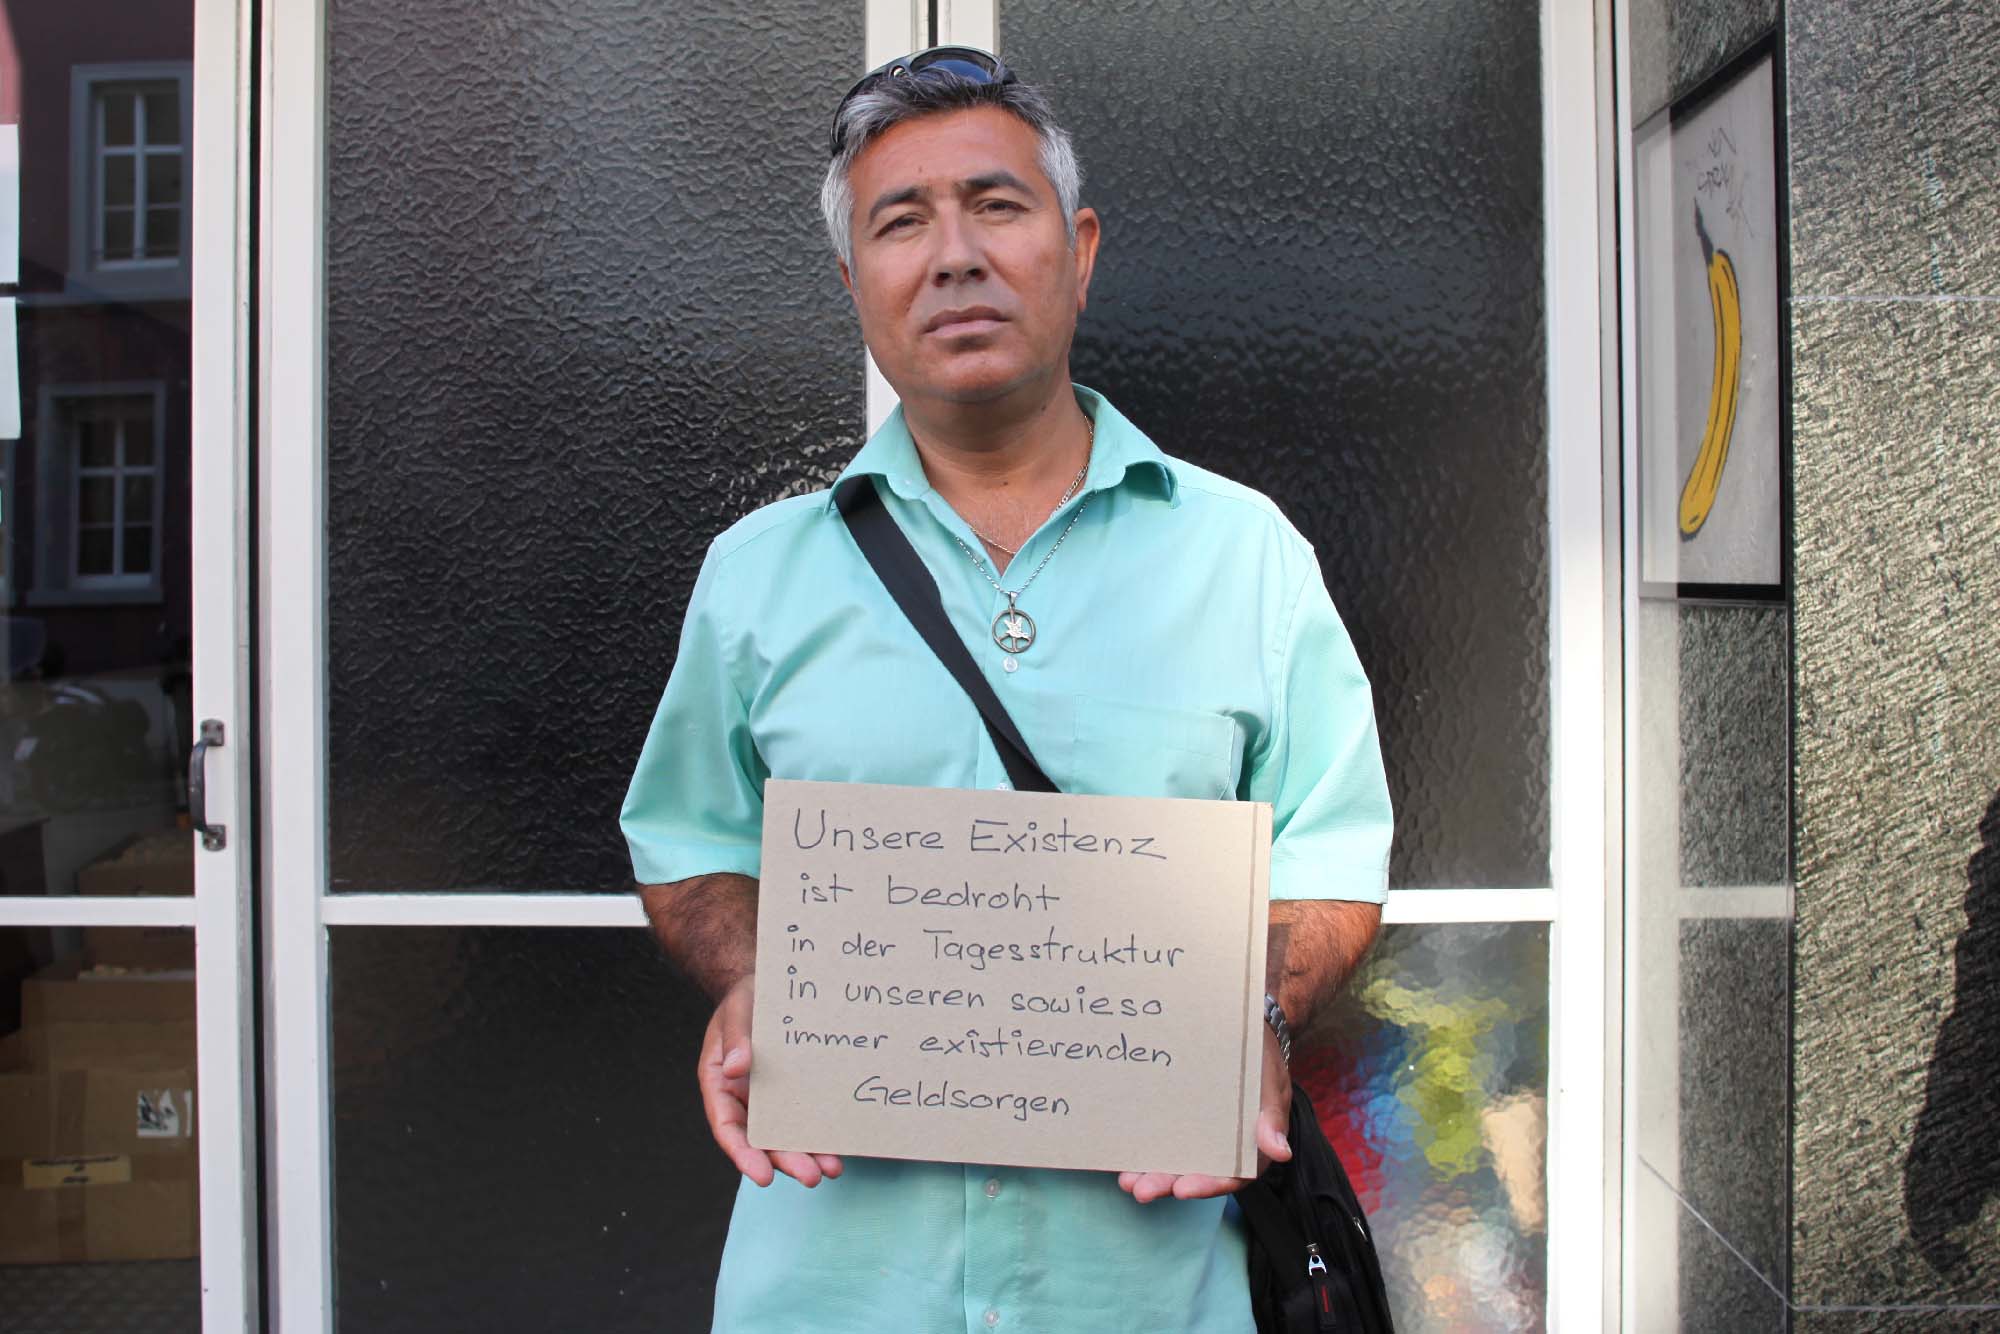 Unsere Existenz
ist bedroht
in der Tagesstruktur
in unseren sowieso
immer existierenden
Geldsorgen